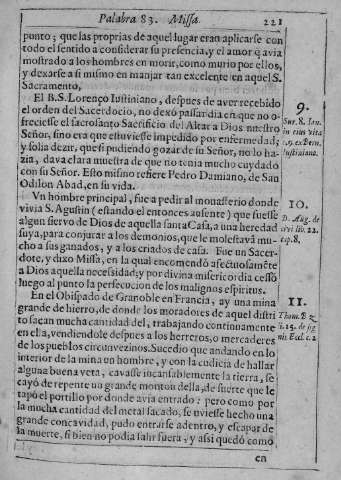 Palabra 83. Missa. 221
punto; que las proprias de aquel lugar eran aplicarse con
todo el sentido a considerar su presencia, y el amor q̃ avia
mostrado a los hombres en morir, como murio por ellos,
y dexarse a si mismo en manjar tan excelente en aquel S.
Sacramento,
El B.S. Lorenço Iustiniano, despues de aver recebido
el orden del Sacerdocio, no dexò passar dia en que no o-
freciesse el sacrosanto Sacrificio del Altar a Dios nuestro
Señor, sino era que estuviesse impedido por enfermedad;
y solia dezir, que si pudiendo gozar de su Señor, no lo ha-
zia, dava clara muestra de que no tenia mucho cuydado
con su Señor. Esto mismo refiere Pedro Damiano, de San
Odilon Abad, en su vida.
Vn hombre principal, fue a pedir al monasterio donde
vivia S. Agustin (estando el entonces ausente) que fuesse
algun siervo de Dios de aquella santa Casa, a una heredad
suya, para conjurar a los demonios, que le molestavã mu-
cho a sus ganados, y a los criados de casa. Fue un Sacer-
dote, y dixo Missa, en la qual encomendò afectuosamẽte
a Dios aquella necessidad; y por divina misericordia cessò
luego al punto la persecucion de los malignos espiritus.
En el Obispado de Granoble en Francia, ay una mina
grande de hierro, de donde los moradores de aquel distri
to sacan mucha cantidad del, trabajando continuamente
en ella, vendiendole despues a los herreros, o mercaderes
de los pueblos circunvezinos. Sucedio que andando en lo
interior de la mina un hombre, y con la cudicia de hallar
alguna buena veta, cavasse incansablemente la tierra, se
cayò de repente un grande monton della, de suerte que le
tapò el portillo por donde avia entrado: pero como por
la mucha cantidad del metal sacado, se uviesse hecho una
grande concavidad, pudo entrarse adentro, y escapar de
la muerte, si bien no podia salir fuera, y assi quedò como
en
9.
Sur. 8. Ian.
in eius vita
c.9. ex Bern.
Iustiniano.
10.
D. Aug. de
civi. lib. 22.
cap. 8.
11.
Thom. B
l. 15. de sig
nis Eccl. c. 2